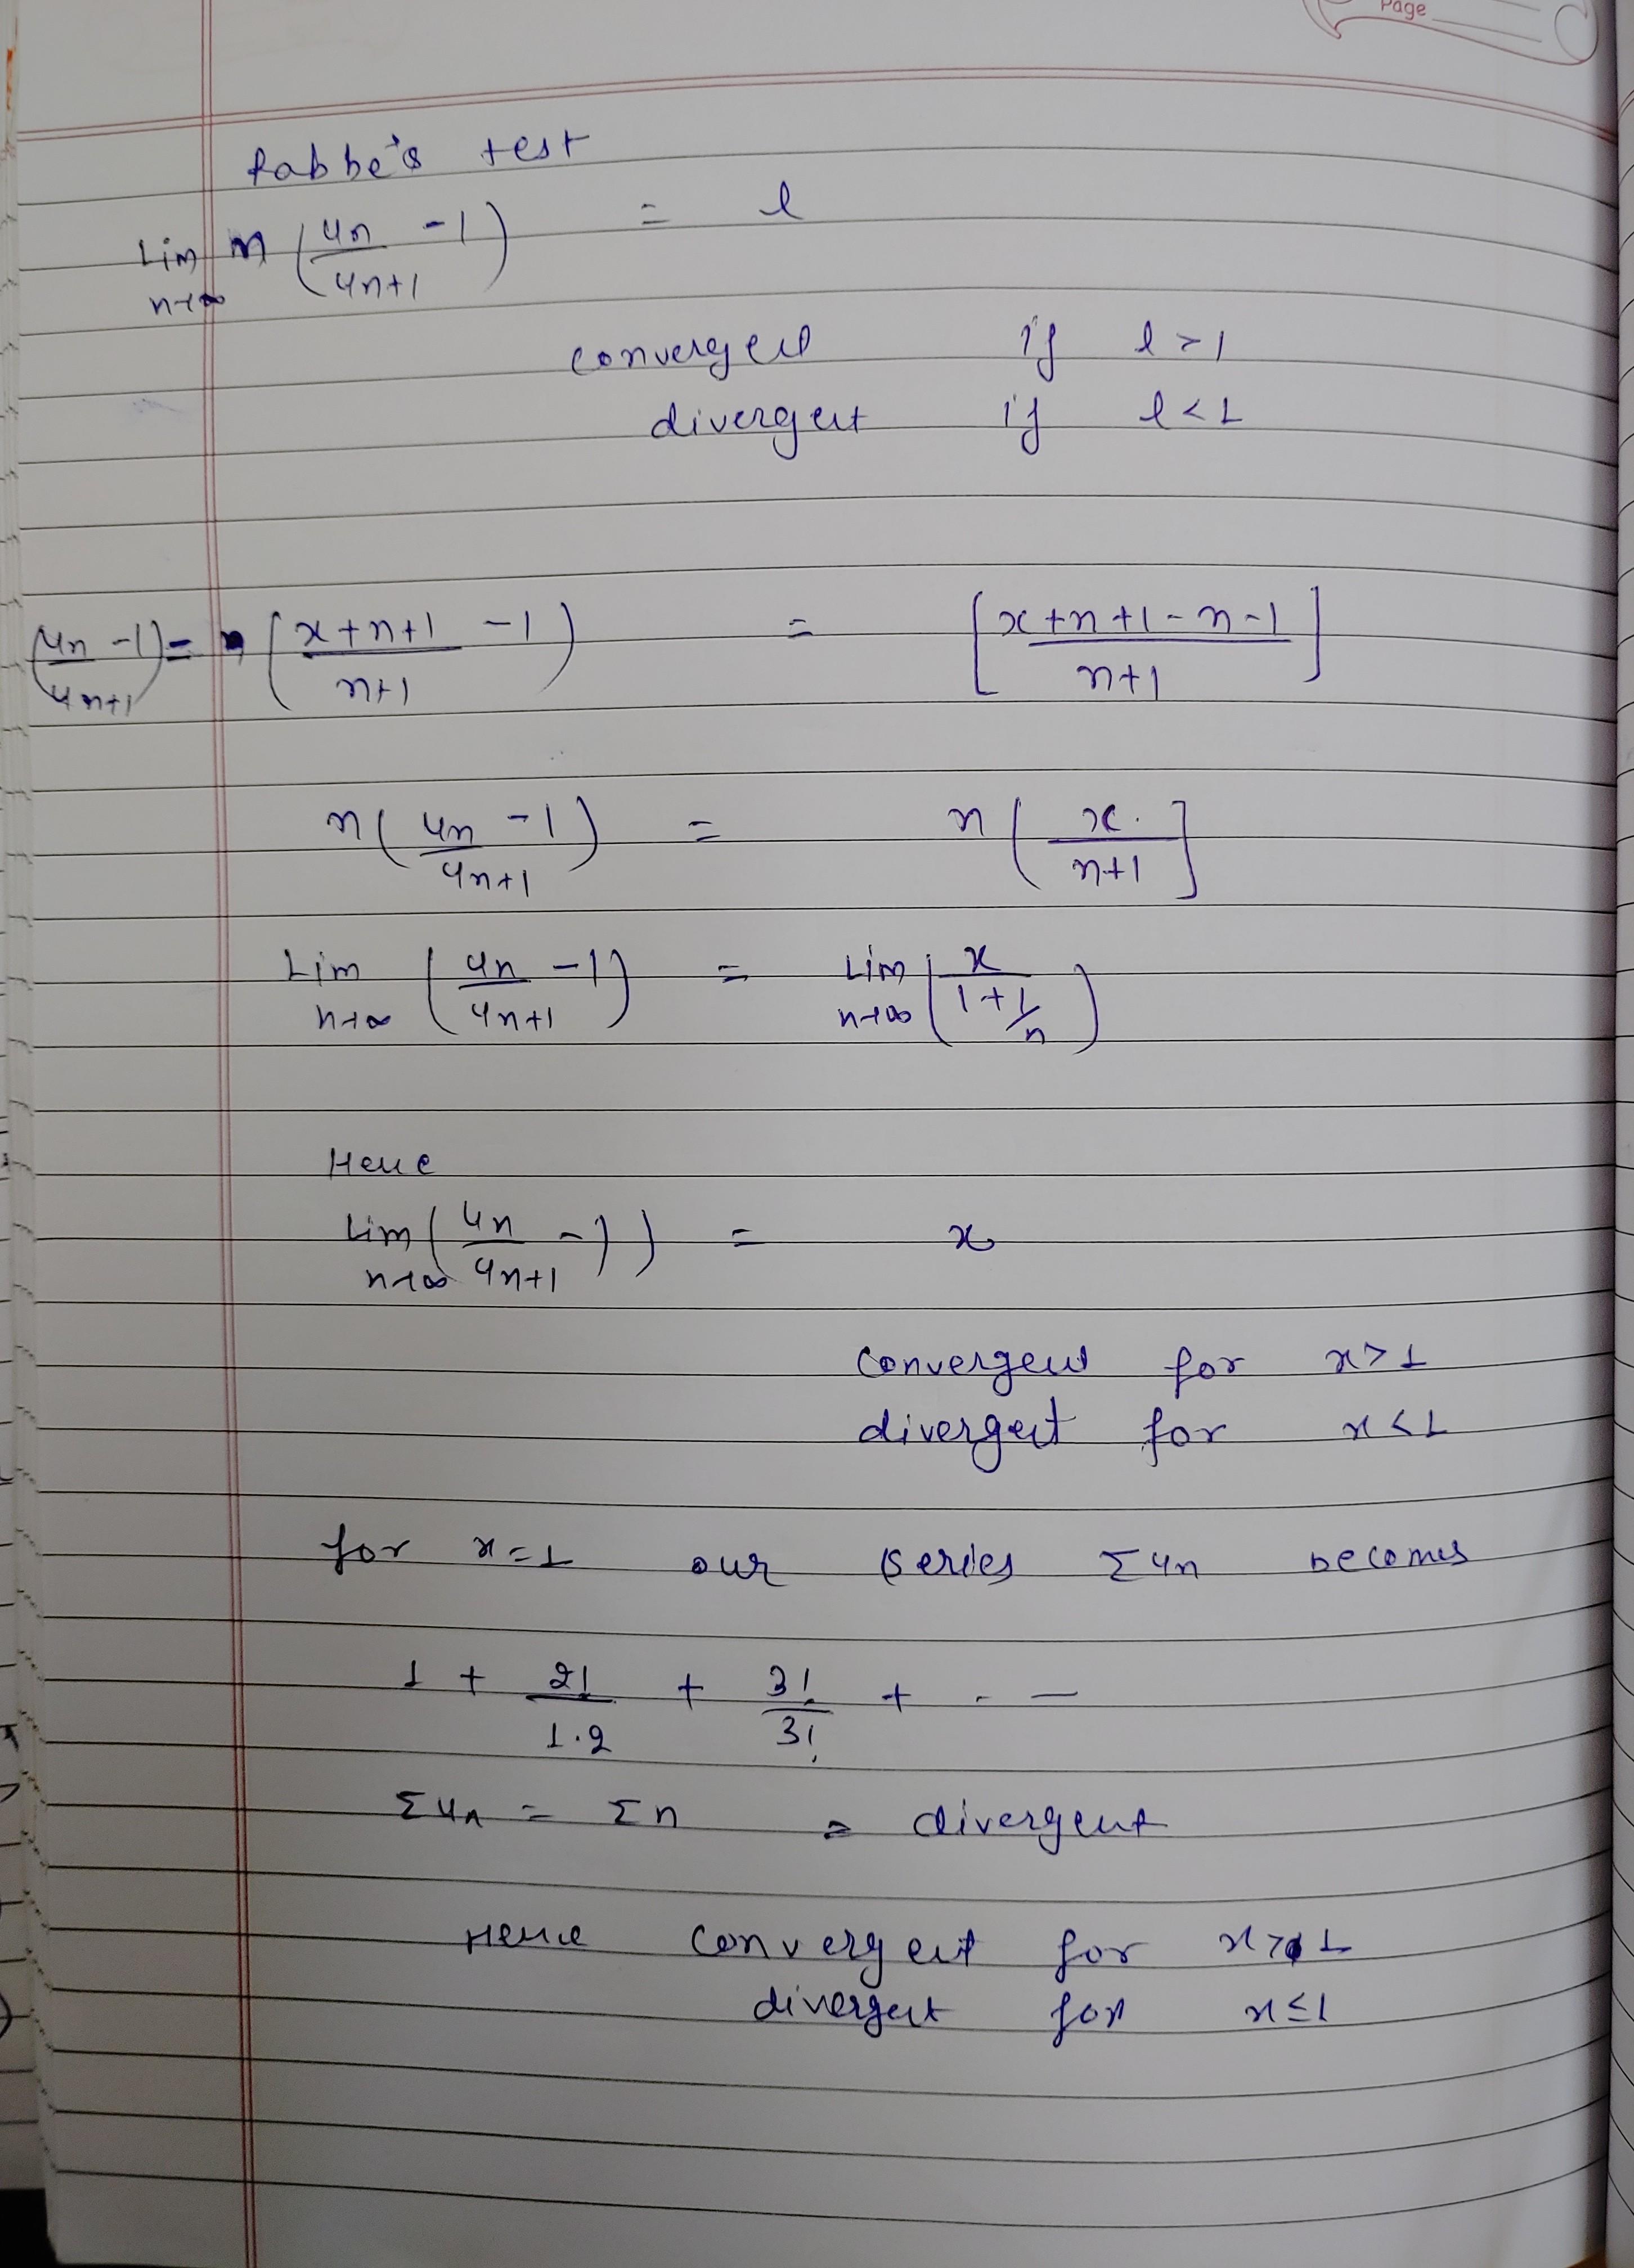 Page
Rabbe's test
Lim n→∞ n (un/un+1 - 1) = l
convergent if l > 1
divergent if l < 1
(un/un+1 - 1) = (x+n+1/n+1 - 1) = [x+n+1-n-1/n+1]
n(un/un+1 - 1) = n(x./n+1]
Lim n→∞ (un/un+1 - 1) = Lim n→∞ (x/1+1/n)
Hence
Lim n→∞ (un/un+1 - 1) = x
convergent for x > 1
divergent for x < 1
for x = 1 our series Σun becomes
1 + 2!/1.2 + 3!/3! + - —
Σun = Σn = divergent
Hence convergent for x > 1
divergent for x ≤ 1